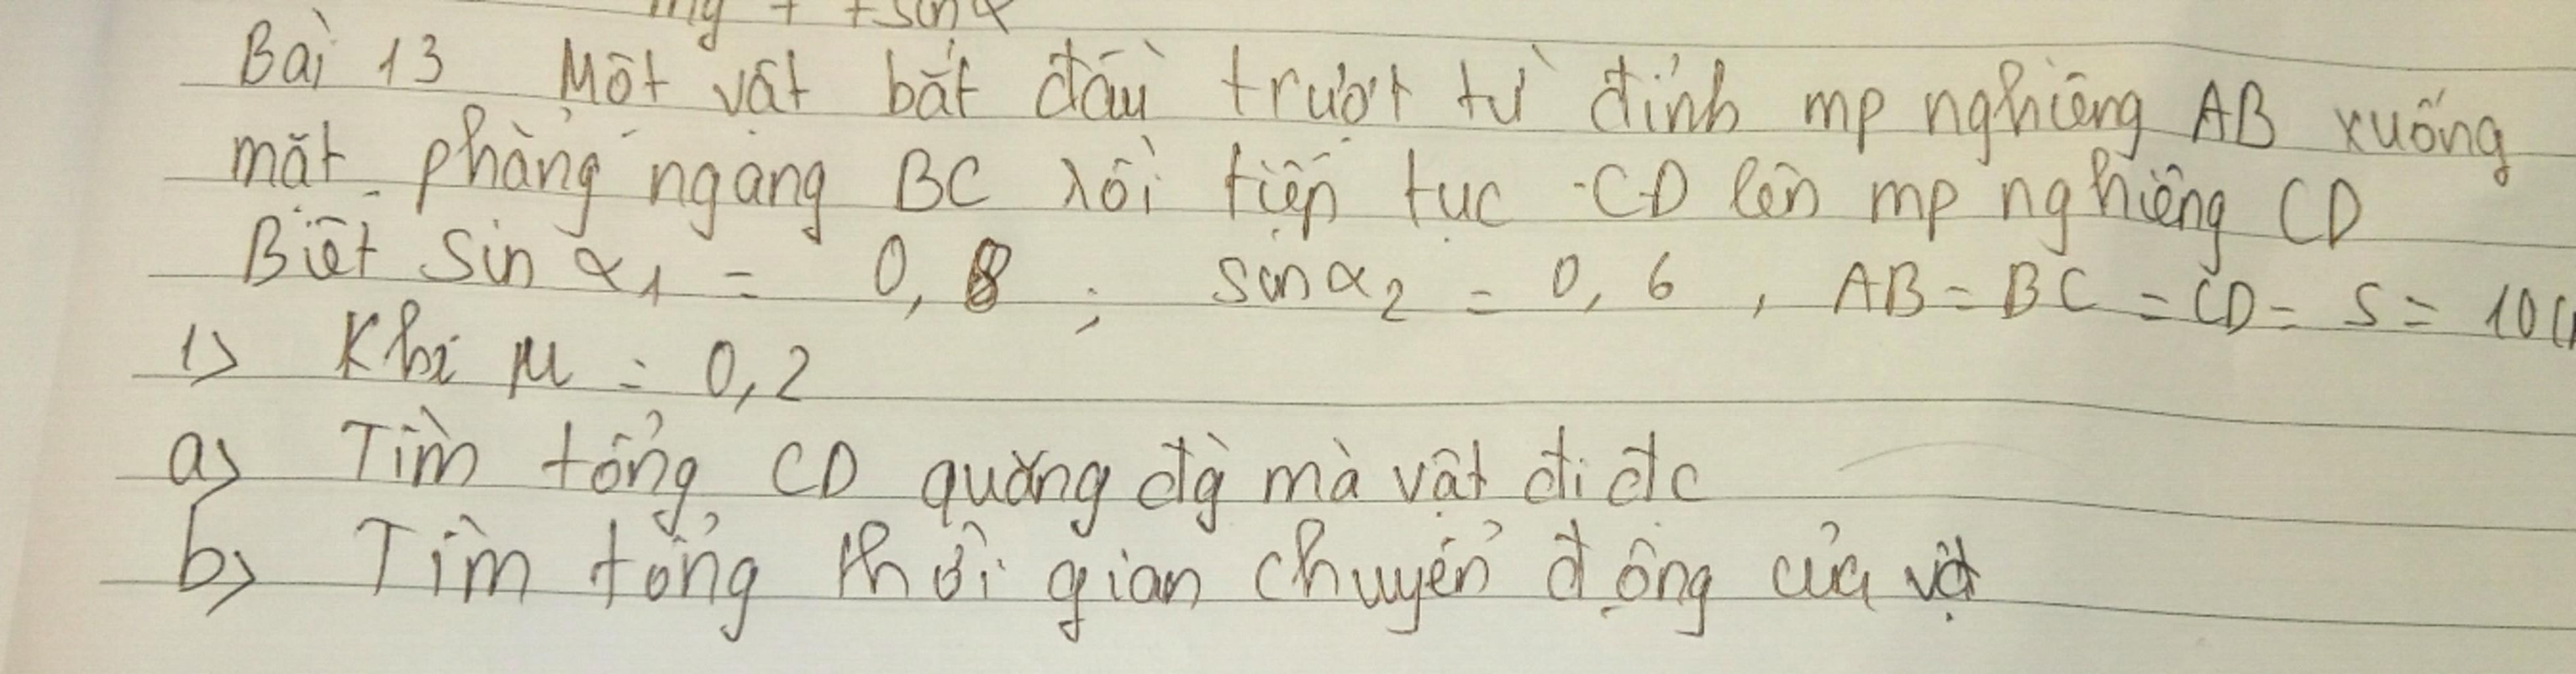 mg + +sinα
Bài 13 Một vật bắt đầu trượt từ đỉnh mp nghiêng AB xuống
mặt phẳng ngang BC rồi tiếp tục CD lên mp nghiêng CD
Biết sin α1 = 0,8 ; sin α2 = 0,6 , AB = BC = CD = S = 10
1> Khi μ = 0,2
a> Tìm tổng CD quãng đg mà vật đi đc
b> Tìm tổng thời gian chuyển động của vật